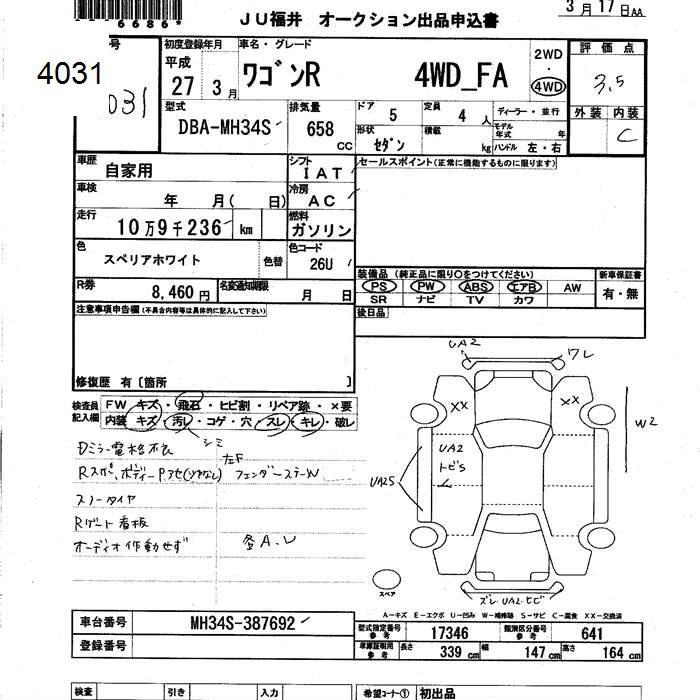 6686
3月17日AA
JU福井 オークション出品申込書
4031
号
031
初度登録年月
平成
27 3月
車名・グレード
ワゴンR 4WD_FA
2WD
・
4WD
評価点
3.5
外装 内装
C
型式
DBA-MH34S
排気量
658 CC
ドア 5
定員 4 人
形状 セダン
積載 kg
ディーラー・並行
モデル年式 年
ハンドル 左・右
車歴
自家用
シフト
IAT
セールスポイント(正常に機能するものに限ります)
車検
年 月( 日)
冷房
AC
走行
10万9千236 km
燃料
ガソリン
色
スペリアホワイト
色替
色コード
26U
装備品 (純正品に限り○をつけてください) 新車保証書
PS PW ABS エアB AW 有・無
SR ナビ TV カワ
R券
8,460円
名変通知期限
月 日
後日品
注意事項申告欄(不具合内容等は具体的に記入して下さい)
修復歴 有 [箇所 ]
検査員記入欄
FW キズ・飛石・ヒビ割・リペア跡・×要
内装 キズ・汚レ・コゲ・穴・スレ・キレ・破レ
シミ
スノータイヤ
Rゲート看板
オーディオ作動せず
UA2
ワレ
XX
XX
W2
UA2
トビS
UA2S
スペア
ズレ・UA2・ヒビ
A-キズ E-エクボ U-凹み W-補修跡 S-サビ C-腐食 XX-交換済
車台番号
MH34S-387692
登録番号
型式指定番号 参考 17346
類別区分番号 参考 641
車庫証明用 参考 長さ 339 cm 幅 147 cm 高さ 164 cm
検査 引き 入力
希望コーナー① 初出品